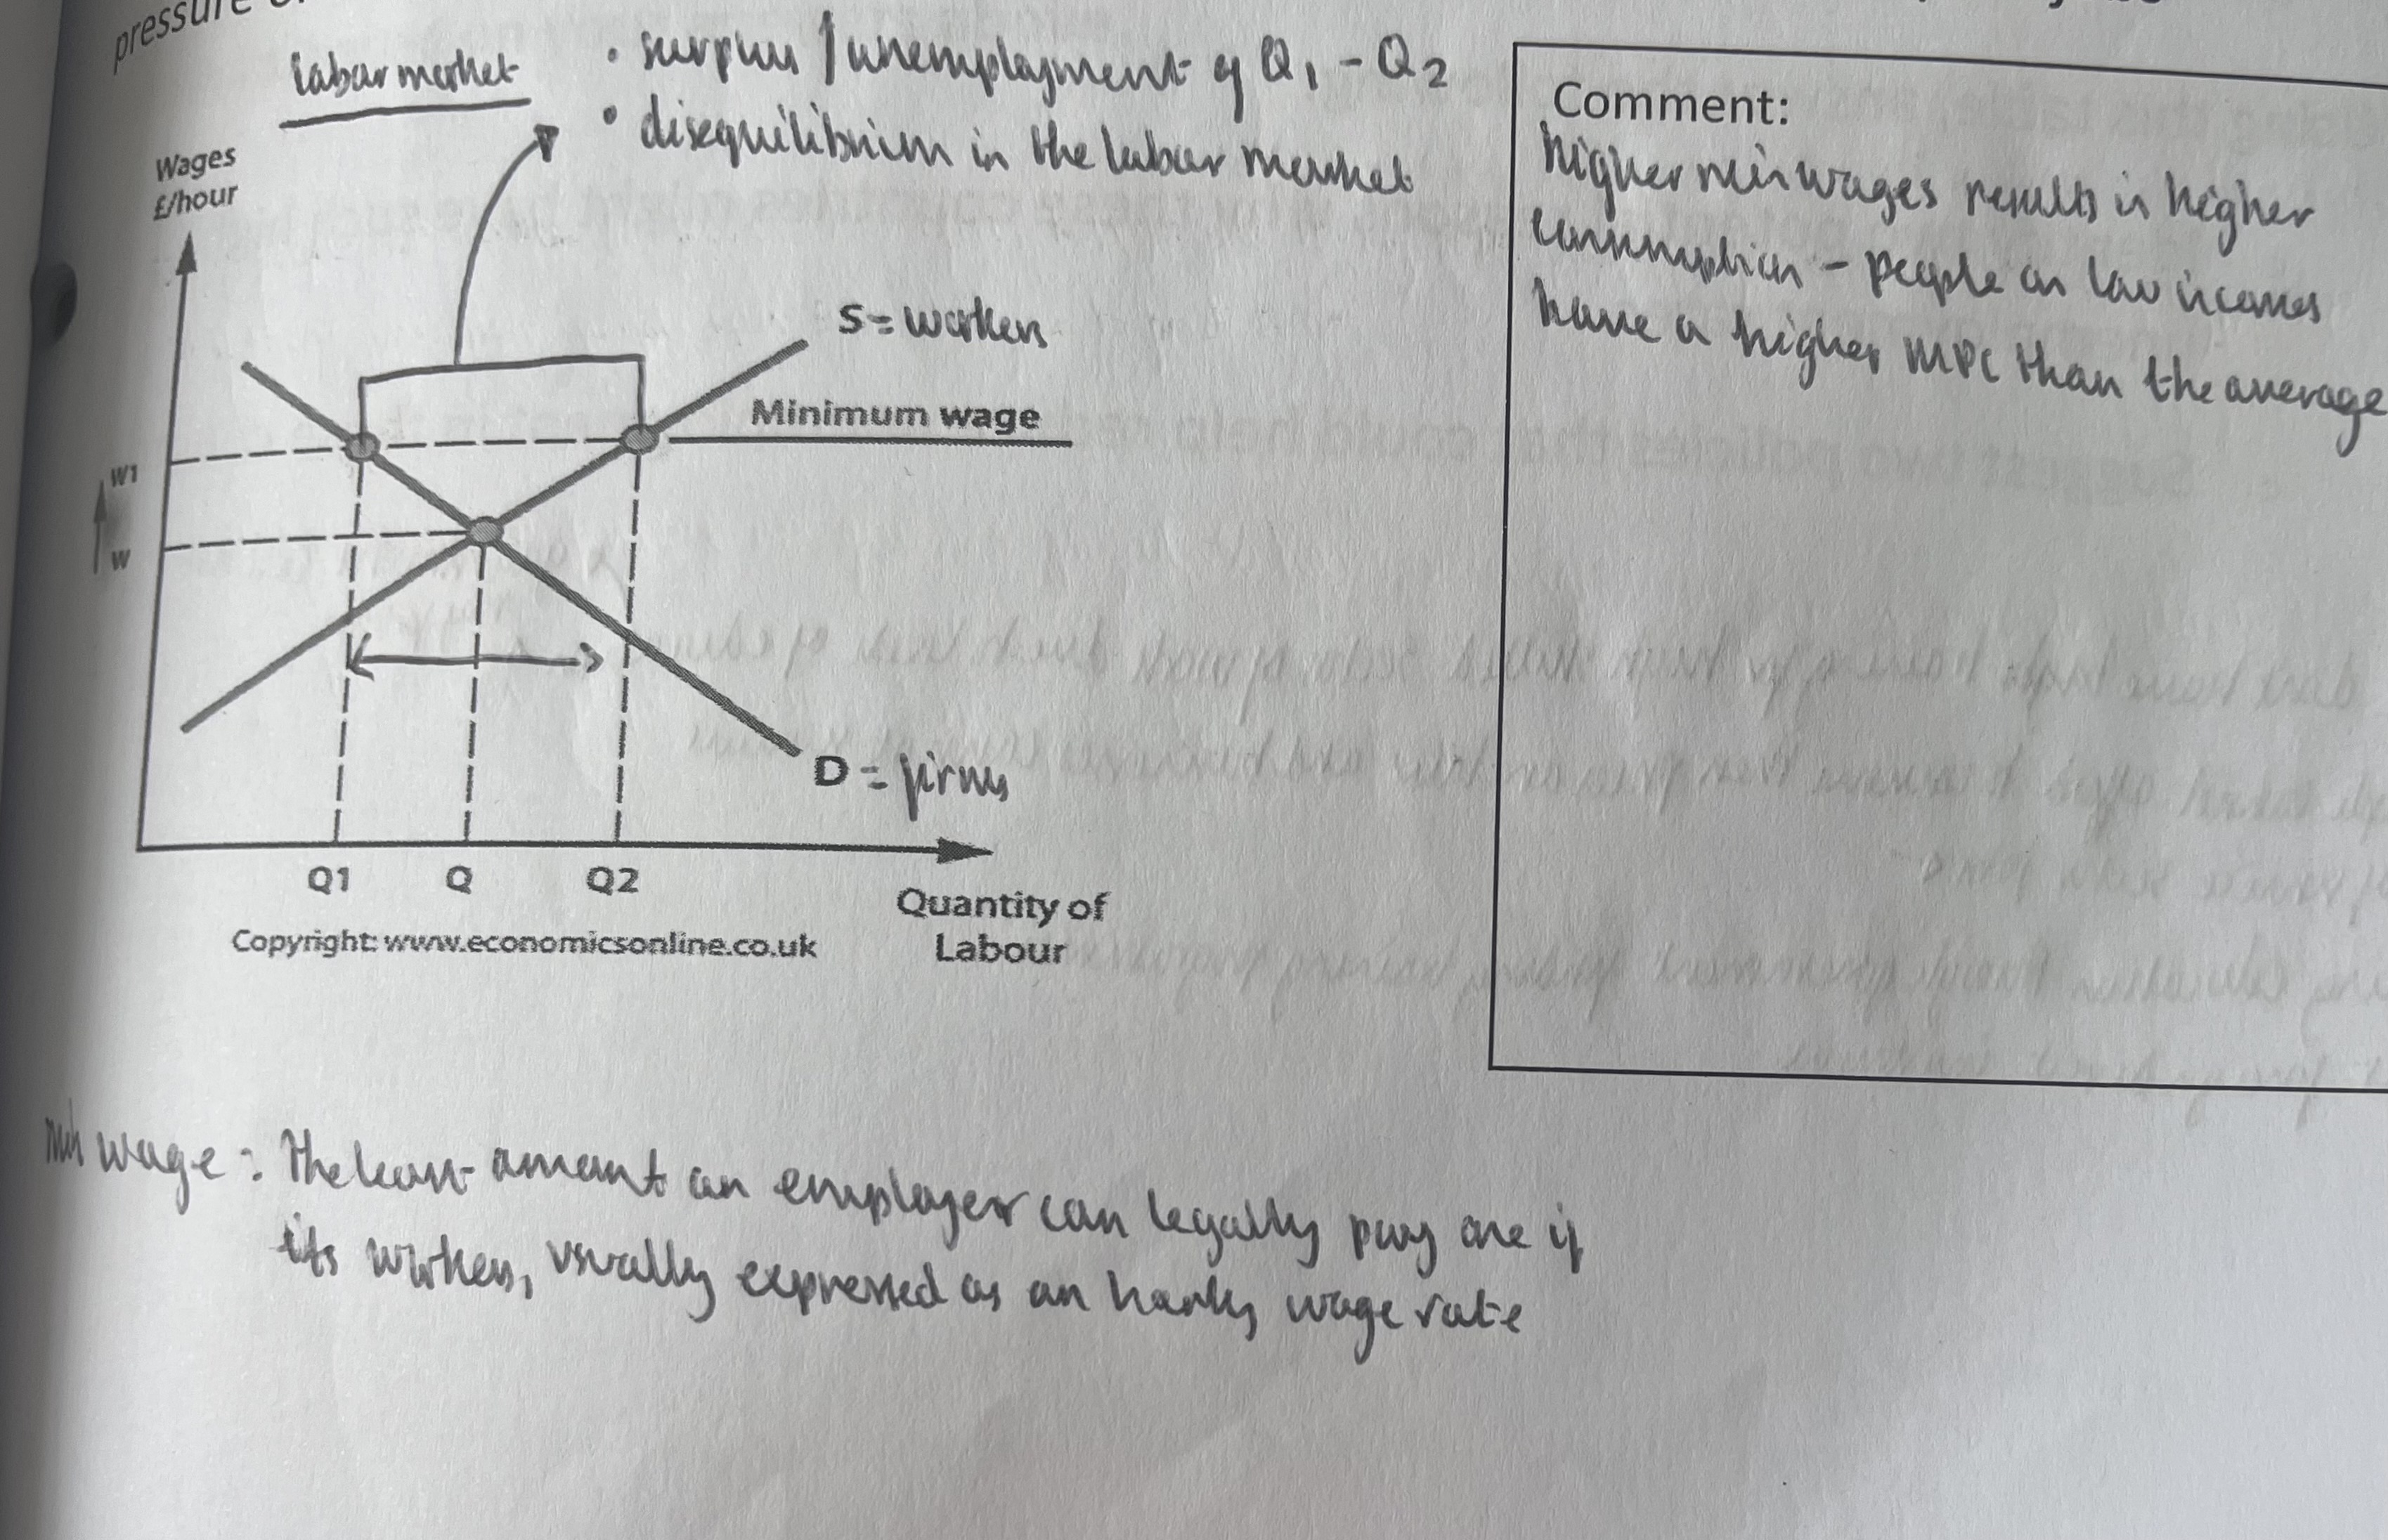 pressure
labour market
• surplus / unemployment of Q1 - Q2
• disequilibrium in the labour market
Wages
£/hour
S = workers
Minimum wage
W1
W
D = firms
Q1 Q Q2
Quantity of
Labour
Copyright: www.economicsonline.co.uk
Comment:
higher min wages results in higher
consumption - people on low incomes
have a higher MPC than the average
min wage : The least amount an employer can legally pay one if
its workers, usually expressed as an hourly wage rate